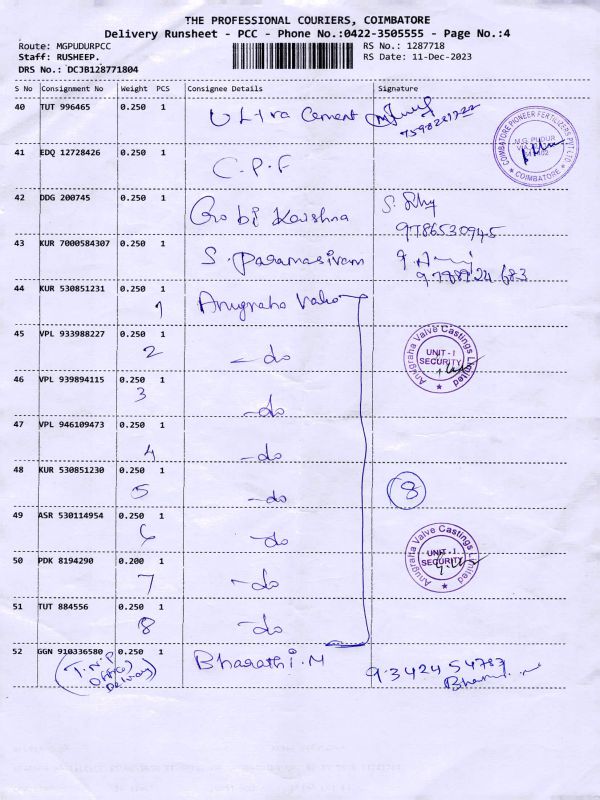 THE PROFESSIONAL COURIERS, COIMBATORE
Delivery Runsheet - PCC - Phone No.:0422-3505555 - Page No.:4
Route: MGPUDURPCC RS No.: 1287718
Staff: RUSHEEP. RS Date: 11-Dec-2023
DRS No.: DCJB128771804
S No Consignment No Weight PCS Consignee Details Signature
40 TUT 996465 0.250 1 Ultra Cement
COIMBATORE PIONEER FERTILIZERS PVT LTD
M.G. PUDUR
COIMBATORE
41 EDQ 12728426 0.250 1 C.P.F
42 DDG 200745 0.250 1 Gobi Krishna
9786530945
43 KUR 7000584307 0.250 1 S. Paramasivam
44 KUR 530851231 0.250 1 Anugraha Valve
1
45 VPL 933988227 0.250 1 -do
2
Anugraha Valve Castings Limited
UNIT-I
SECURITY
46 VPL 939894115 0.250 1 -do
3
47 VPL 946109473 0.250 1 -do
4
48 KUR 530851230 0.250 1 -do 8
5
49 ASR 530114954 0.250 1 -do
6
Anugraha Valve Castings Limited
UNIT-I
SECURITY
50 PDK 8194290 0.200 1 -do
7
51 TUT 884556 0.250 1 -do
8
52 GGN 910336580 0.250 1 Bharathi.M 9342454787
(T.N.P
Office
Delivery)